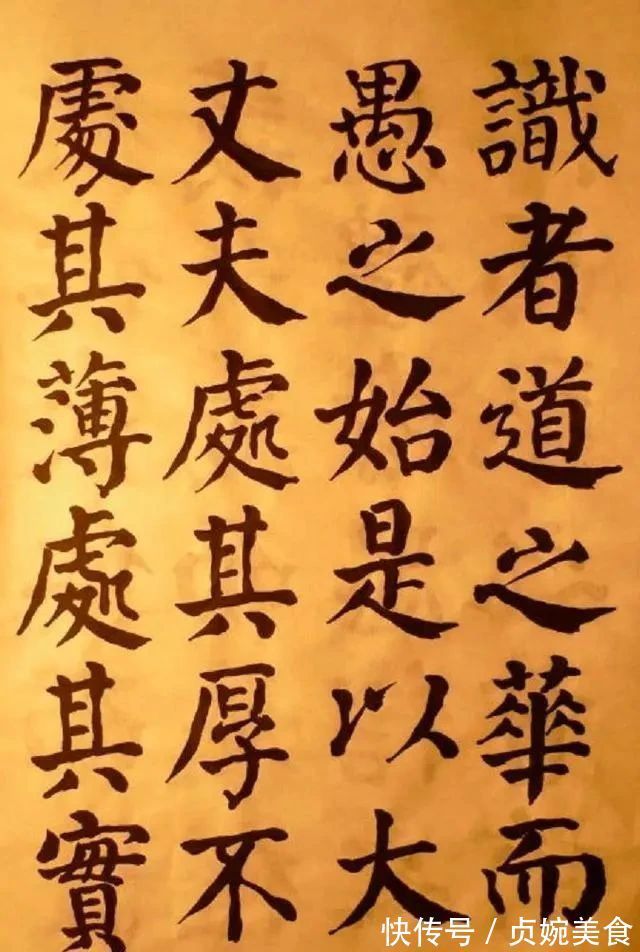 識者道之華而
愚之始是以大
丈夫處其厚不
處其薄處其實
快传号／贞婉美食